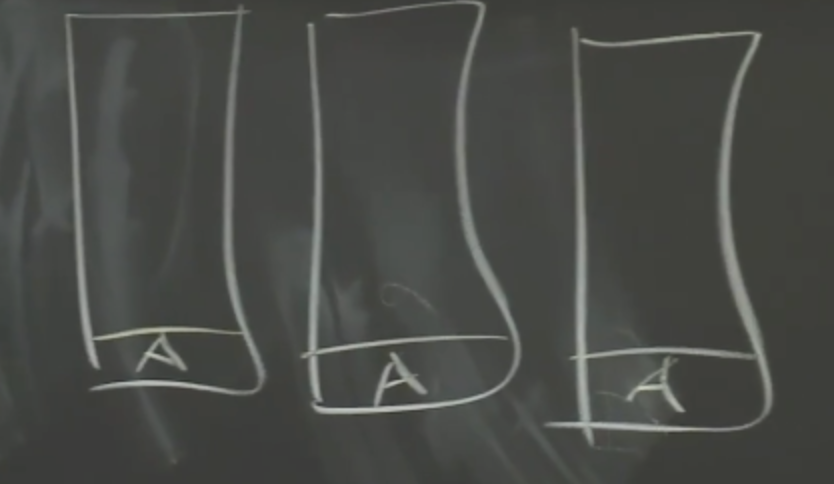 A A A